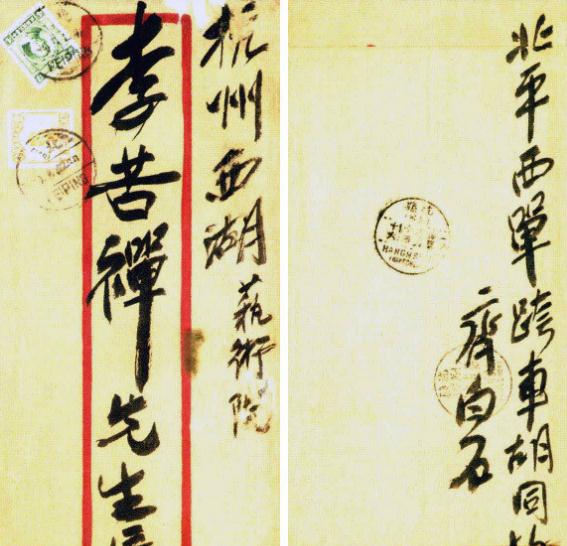 杭州西湖藝術院
李苦禪先生
PEIPING
北平西單跨車胡同
齊白石
HANGCHOW